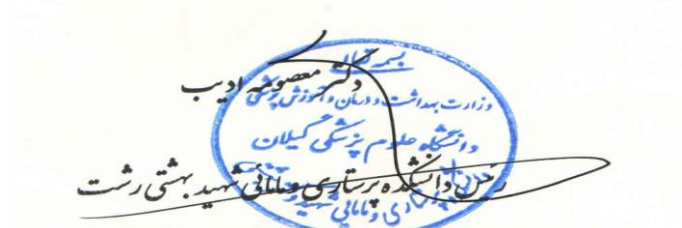 بسمه تعالی
دکتر معصومه ادیب
وزارت بهداشت و درمان و آموزش پزشکی
دانشگاه علوم پزشکی گیلان
رئیس دانشکده پرستاری و مامائی شهید بهشتی رشت
پرستاری و مامائی شهید